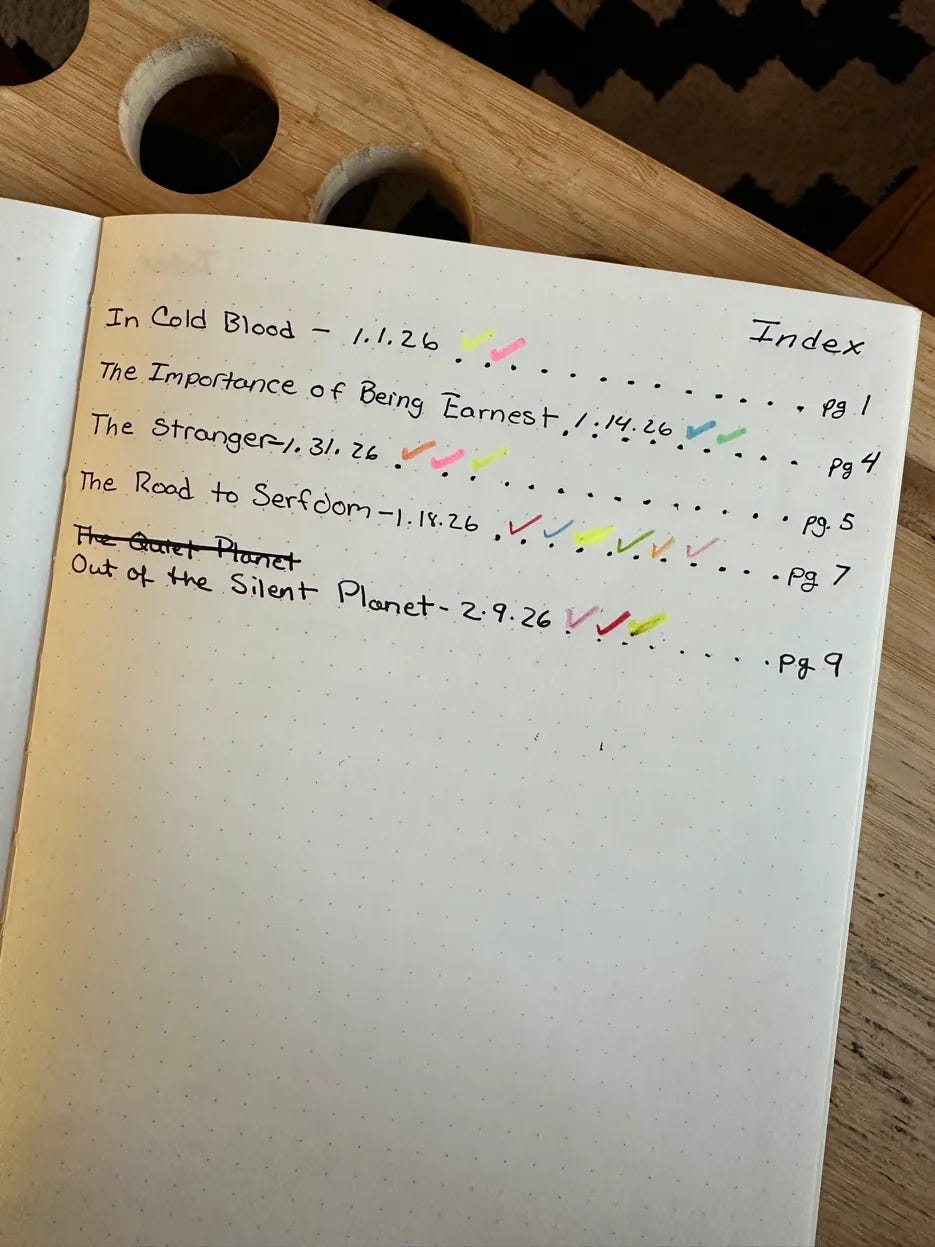 Index
In Cold Blood - 1.1.26 ✓✓ . . . . . . . . . . . . pg 1
The Importance of Being Earnest . 1.14.26 ✓✓ . . . . . pg 4
The Stranger-1.31.26 ✓✓✓ . . . . . . . . . . . . . pg. 5
The Road to Serfdom-1.18.26 ✓✓✓✓✓✓ . . . . . . . . . pg 7
The Quiet Planet
Out of the Silent Planet - 2.9.26 ✓✓✓ . . . . . . . pg 9